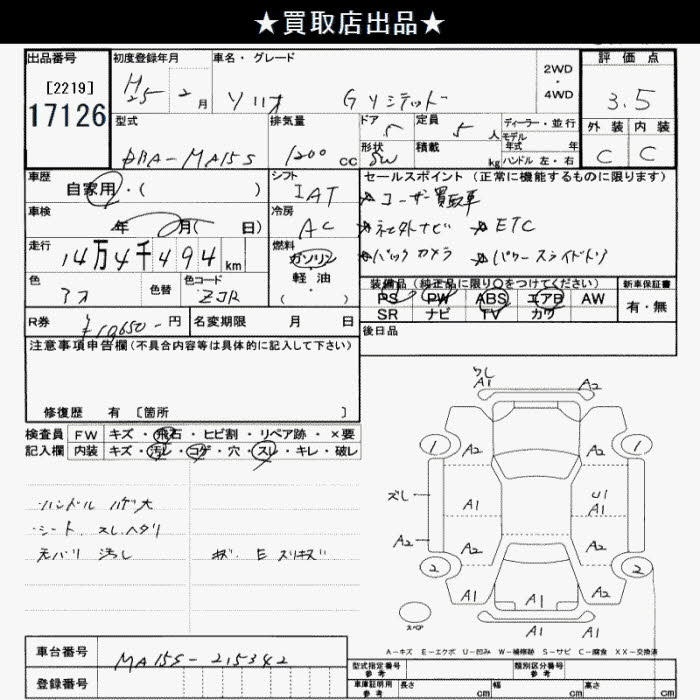 ★買取店出品★
出品番号 初度登録年月 車名・グレード 評価点
[2219] H25 2月 ソリオ Gリミテッド 2WD・4WD 3.5
17126 型式 排気量 ドア 定員 ディーラー・並行 外装 内装
DBA-MA15S 1200cc 5 5人 モデル年式 年
形状 5W 積載 kg ハンドル 左・右 C C
車歴 シフト セールスポイント (正常に機能するものに限ります)
自家用・( ) IAT ☆ユーザー買取車
車検 冷房 ☆社外ナビ ☆ETC
年 月( 日) AC
走行 燃料 ☆バックカメラ ☆パワースライドドア
14万4千494km ガソリン
色 色替 色コード 軽油 装備品 (純正品に限り○をつけてください) 新車保証書
アオ ZJR ・( ) PS PW ABS エアB AW 有・無
SR ナビ TV カワ
R券 ¥10,650-円 名変期限 月 日 後日品
注意事項申告欄(不具合内容等は具体的に記入して下さい)
修復歴 有 [箇所 ]
検査員 FW キズ・飛石・ヒビ割・リペア跡・×要
記入欄 内装 キズ・汚レ・コゲ・穴・スレ・キレ・破レ
ハンドル ハゲ大
シート スレ、ヘタリ
天バリ 汚レ
A1 A2
1 A2 A2 1
ズレ A1 U1
A1
A2 A2 A2
2 2
A1 A1 A1
スペア A1 A1
A-キズ E-エクボ U-凹み W-補修跡 S-サビ C-腐食 XX-交換済
車台番号 MA15S-215342
型式指定番号 参考 類別区分番号 参考
登録番号 車庫証明用 参考 長さ cm 幅 cm 高さ cm